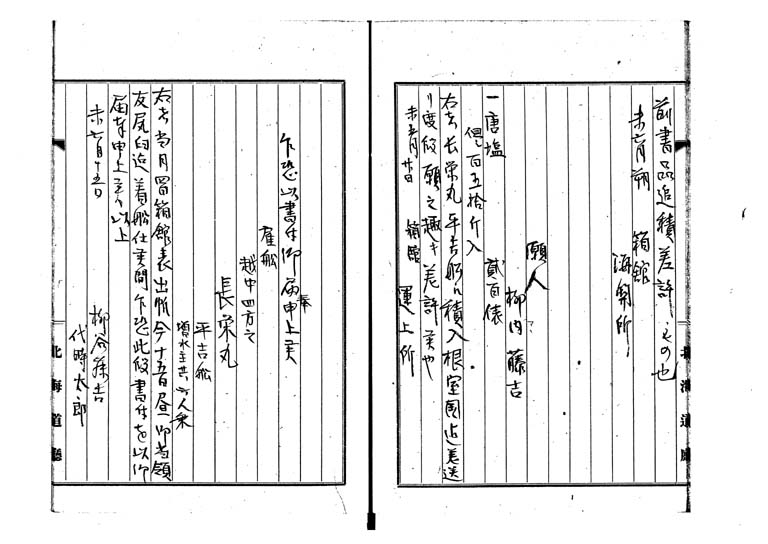 前書品追積差許もの也
未六月朔 箱館
海関所
願人
柳内藤吉
一唐塩 貳百俵
但百五拾斤入
右者長栄丸平吉船に積入根室国迄差送
り度段願之趣差許候也
未五月廿日 箱館 運上所
乍恐以書付御届奉申上候
雇船
越中四方之
長栄丸
平吉船
水主共六人乗
右者当月 箱館表出帆今十五日昼 御当領
友尻 迄着船仕候間乍恐此段書付を以御
届奉申上候以上
未六月十五日
柳谷藤吉
代時太郎
北海道廳
北海道廳